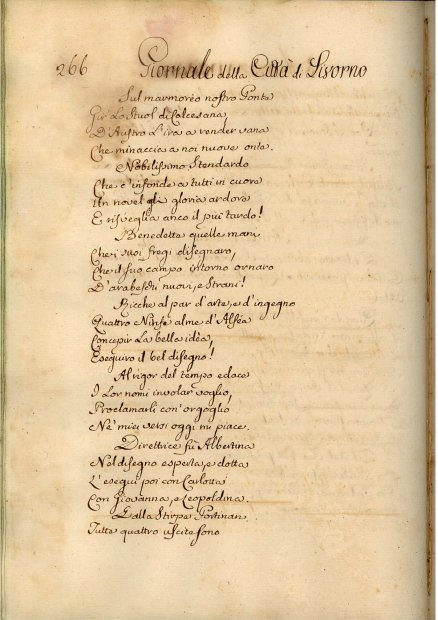 266 Giornale della Città di Livorno
Sul marmoreo nostro Ponte
Gir Lo Stuol di Calcesana,
D'Austro L'ira a render vana
Che minaccia a noi nuove onte.
Nobilissimo Stendardo
Che c'infonde a tutti in cuore
Un novel gli gloria ardore
E risveglia anco il più tardo!
Benedette quelle mani
Che i suoi fregi disegnaro,
Che il suo campo intorno ornaro
D'arabeschi nuovi, e Strani!
Ricche al par d'arte, e d'ingegno
Quattro Ninfe alme d'Alfèa
Concepir La bella idèa,
Eseguiro il bel disegno!
Al rigor del tempo edace
I Lor nomi involar voglio,
Proclamarli con orgoglio
Ne' miei versi oggi mi piace.
Direttrice fù Albertina
Nel disegno esperta, e dotta
L'eseguì poi con Carlotta
Con Giovanna, e Leopoldina.
Dalla Stirpe
Tutte quattro uscite sono